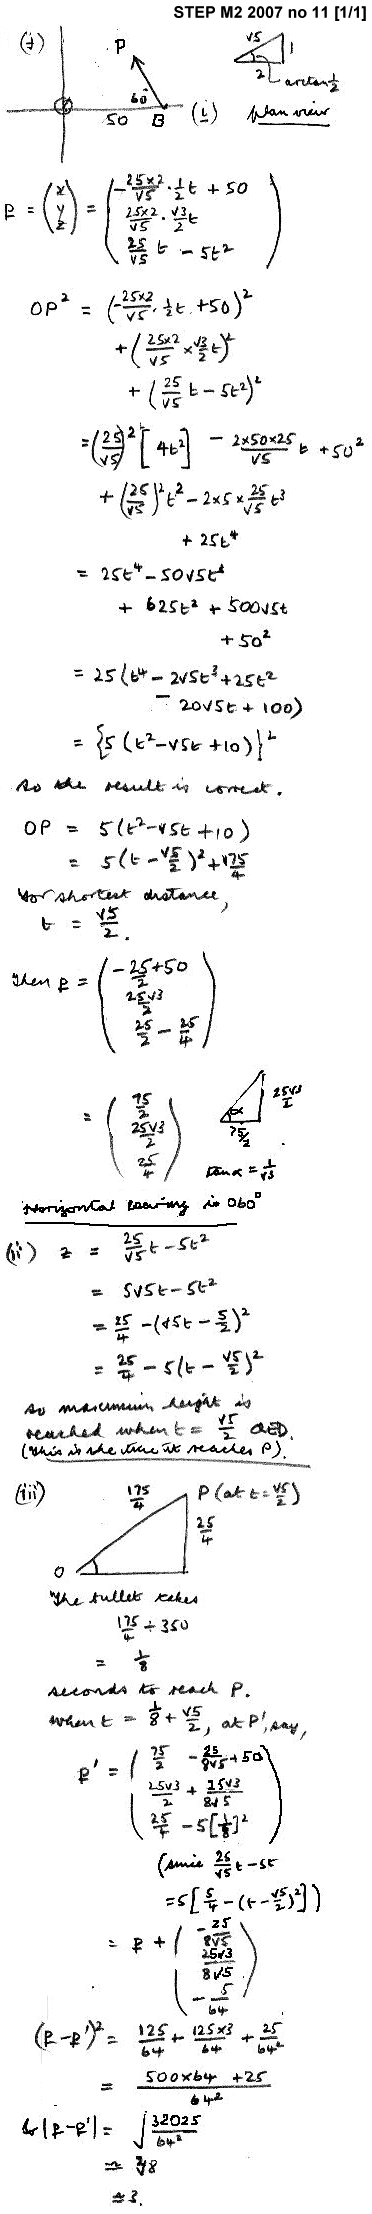 STEP M2 2007 no 11 [1/1]
(i) P √5 1
60° 2 arctan ½
50 B (i) plan view
r = (x y z) = ( -25×2/√5 · ½t + 50
25×2/√5 · √3/2 t
25/√5 t - 5t² )
OP² = (-25×2/√5 · ½t + 50)²
+ (25×2/√5 × √3/2 t)²
+ (25/√5 t - 5t²)²
= (25/√5)² [4t²] - 2×50×25/√5 t + 50²
+ (25/√5)² t² - 2×5×25/√5 t³
+ 25t⁴
= 25t⁴ - 50√5t³
+ 625t² + 500√5t
+ 50²
= 25(t⁴ - 2√5t³ + 25t²
- 20√5t + 100)
= {5(t² - √5t + 10)}²
so the result is correct.
OP = 5(t² - √5t + 10)
= 5(t - √5/2)² + 175/4
For shortest distance,
t = √5/2.
Then r = ( -25/2 + 50
25√3/2
25/2 - 25/4 )
= ( 75/2
25√3/2
25/4 ) α 75/2 25√3/2
tan α = 1/√3
Horizontal bearing is 060°
(ii) z = 25/√5 t - 5t²
= 5√5t - 5t²
= 25/4 - (√5t - 5/2)²
= 25/4 - 5(t - √5/2)²
so maximum height is
reached when t = √5/2 QED.
(this is the time it reaches P).
(iii) 175/4 P (at t = √5/2)
25/4
O
The bullet takes
175/4 ÷ 350
= 1/8
seconds to reach P.
When t = 1/8 + √5/2, at P', say,
r' = ( 75/2 - 25/8√5 + 50
25√3/2 + 25√3/8√5
25/4 - 5[1/8]² )
(since 25/√5 t - 5t
= 5[5/4 - (t - √5/2)²])
= r + ( -25/8√5
25√3/8√5
-5/64 )
(r - r')² = 125/64 + 125×3/64 + 25/64²
= 500×64 + 25 / 64²
so |r - r'| = √32025/64²
≈ √8
≈ 3.